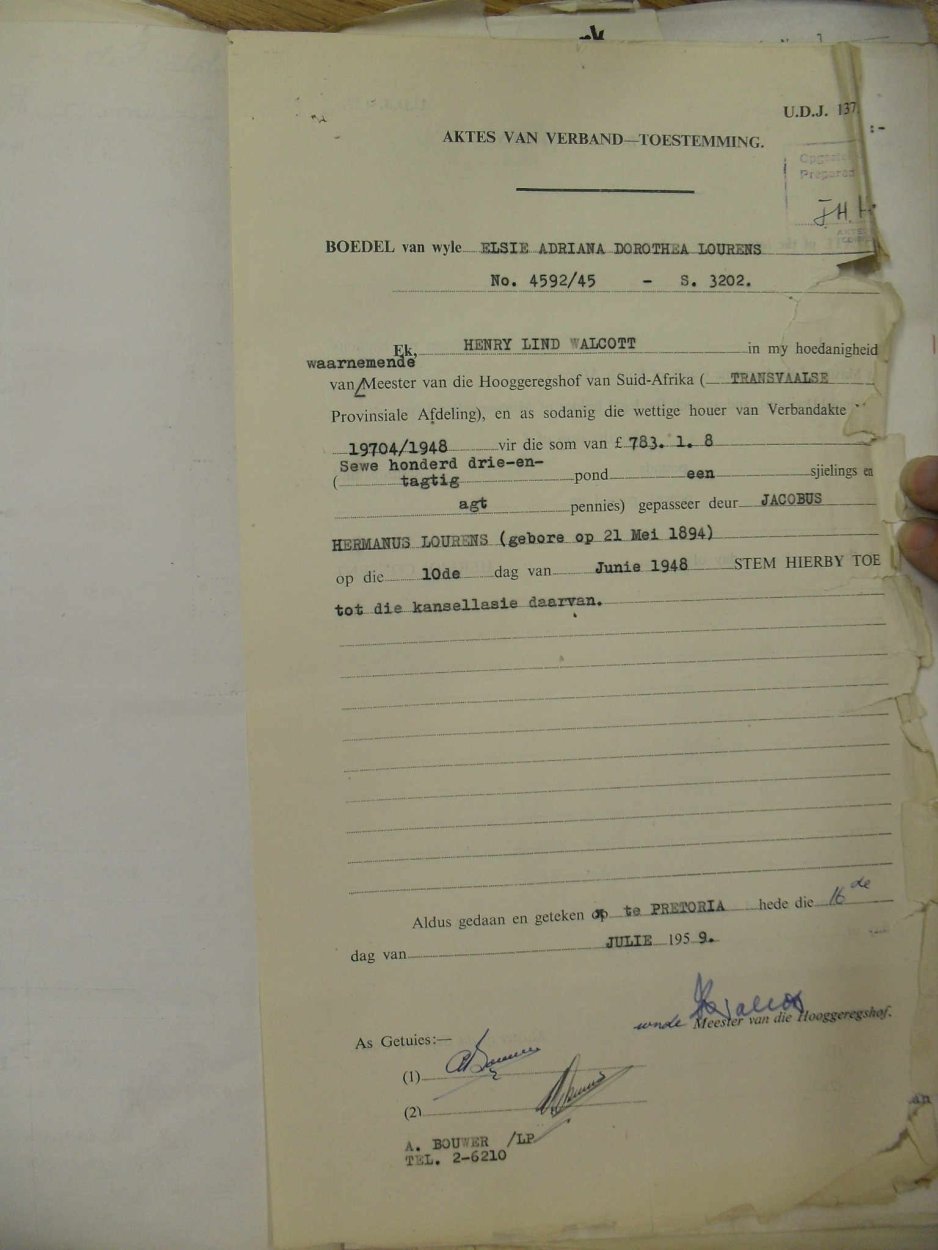 U.D.J. 137.
AKTES VAN VERBAND—TOESTEMMING.
Opgestel
Prepared
J.H.H.
BOEDEL van wyle ELSIE ADRIANA DOROTHEA LOURENS
No. 4592/45 - S. 3202.
Ek, HENRY LIND WALCOTT in my hoedanigheid
waarnemende
van Meester van die Hooggeregshof van Suid-Afrika ( TRANSVAALSE
Provinsiale Afdeling), en as sodanig die wettige houer van Verbandakte
19704/1948 vir die som van £ 783. 1. 8
Sewe honderd drie-en-
( tagtig pond een sjielings en
agt pennies) gepasseer deur JACOBUS
HERMANUS LOURENS (gebore op 21 Mei 1894)
op die 10de dag van Junie 1948 STEM HIERBY TOE
tot die kansellasie daarvan.
Aldus gedaan en geteken op te PRETORIA hede die 16de
dag van JULIE 1959.
wnde Meester van die Hooggeregshof.
As Getuies:—
(1)
(2)
A. BOUWER /LP
TEL. 2-6210